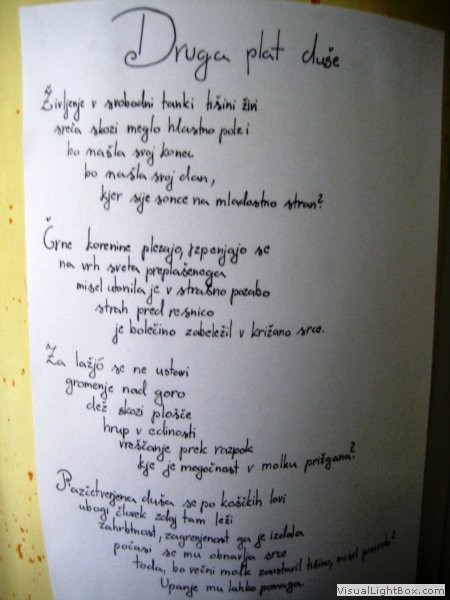 Druga plat duše
Življenje v svobodni tanki tišini živi
sreča skozi meglo hlastno polzi
bo našla svoj konec
bo našla svoj dan,
kjer sije sonce na mladostno stran?
Črne korenine plezajo, vzpenjajo se
na vrh sveta preplašenega
misel utonila je v strašno pozabo
strah pred resnico
je bolečino zabeležil v križano srce.
Za lažjó se ne ustavi
gromenje nad goro
dež skozi plošče
hrup v edinosti
vreščanje prek razpok
kje je mogočnost v molku prižgana?
Razčetverjena duša se po koščkih lovi
ubogi človek zdaj tam leži
zahrbtnost, zagrenjenost ga je izdala
počasi se mu obnavlja srce
toda, bo večni molk zaustavil tišino, misel presodi?
Upanje mu lahko pomaga.
VisualLightBox.com